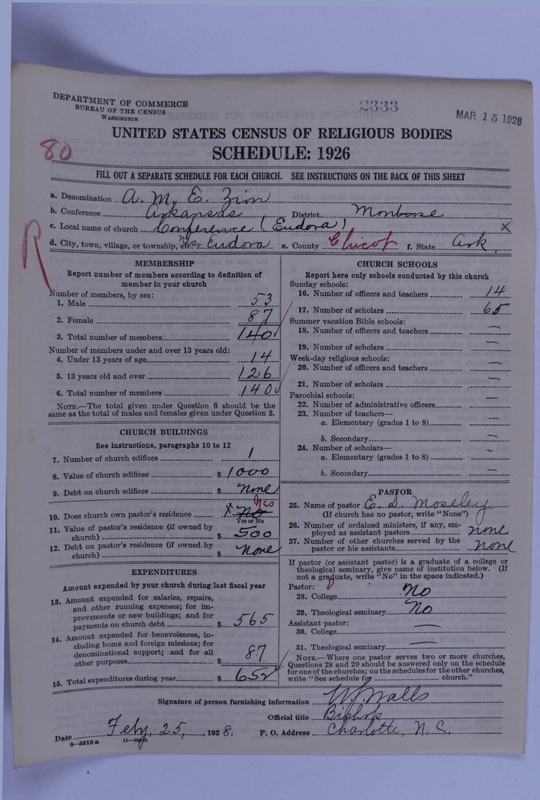 DEPARTMENT OF COMMERCE
BUREAU OF THE CENSUS
WASHINGTON
2333
MAR 15 1928
UNITED STATES CENSUS OF RELIGIOUS BODIES
SCHEDULE: 1926
80
FILL OUT A SEPARATE SCHEDULE FOR EACH CHURCH. SEE INSTRUCTIONS ON THE BACK OF THIS SHEET
a. Denomination A. M. E. Zion
b. Conference Arkansas District Monrose
c. Local name of church Conference (Eudora) X
d. City, town, village, or township, etc. Near Eudora e. County Chicot f. State Ark.
R
MEMBERSHIP
Report number of members according to definition of
member in your church
Number of members, by sex:
1. Male 53
2. Female 87
3. Total number of members 140
Number of members under and over 13 years old:
4. Under 13 years of age 14
5. 13 years old and over 126
6. Total number of members 140
NOTE.—The total given under Question 6 should be
the same as the total of males and females given under Question 3.
CHURCH BUILDINGS
See instructions, paragraphs 10 to 12
7. Number of church edifices 1
8. Value of church edifices $ 1000
9. Debt on church edifices $ None
10. Does church own pastor's residence X No Yes
Yes or No
11. Value of pastor's residence (if owned by
church) $ 500
12. Debt on pastor's residence (if owned by
church) $ None
EXPENDITURES
Amount expended by your church during last fiscal year
13. Amount expended for salaries, repairs,
and other running expenses; for im-
provements or new buildings; and for
payments on church debt $ 565
14. Amount expended for benevolences, in-
cluding home and foreign missions; for
denominational support; and for all
other purposes $ 87
15. Total expenditures during year $ 652
CHURCH SCHOOLS
Report here only schools conducted by this church
Sunday schools:
16. Number of officers and teachers 14
17. Number of scholars 65
Summer vacation Bible schools:
18. Number of officers and teachers —
19. Number of scholars —
Week-day religious schools:
20. Number of officers and teachers —
21. Number of scholars —
Parochial schools:
22. Number of administrative officers —
23. Number of teachers—
a. Elementary (grades 1 to 8) —
b. Secondary —
24. Number of scholars—
a. Elementary (grades 1 to 8) —
b. Secondary —
PASTOR
25. Name of pastor E. D. Moseley
(If church has no pastor, write "None")
26. Number of ordained ministers, if any, em-
ployed as assistant pastors none
27. Number of other churches served by the
pastor or his assistants none
If pastor (or assistant pastor) is a graduate of a college or
theological seminary, give name of institution below. (If
not a graduate, write "No" in the space indicated.)
Pastor:
28. College No
29. Theological seminary No
Assistant pastor:
30. College —
31. Theological seminary —
NOTE.—Where one pastor serves two or more churches,
Questions 28 and 29 should be answered only on the schedule
for one of the churches; on the schedules for the other churches,
write "See schedule for church."
Signature of person furnishing information W J Walls
Official title Bishop
Date Feby, 25, , 1928. P. O. Address Charlotte, N.C.
8-5518a